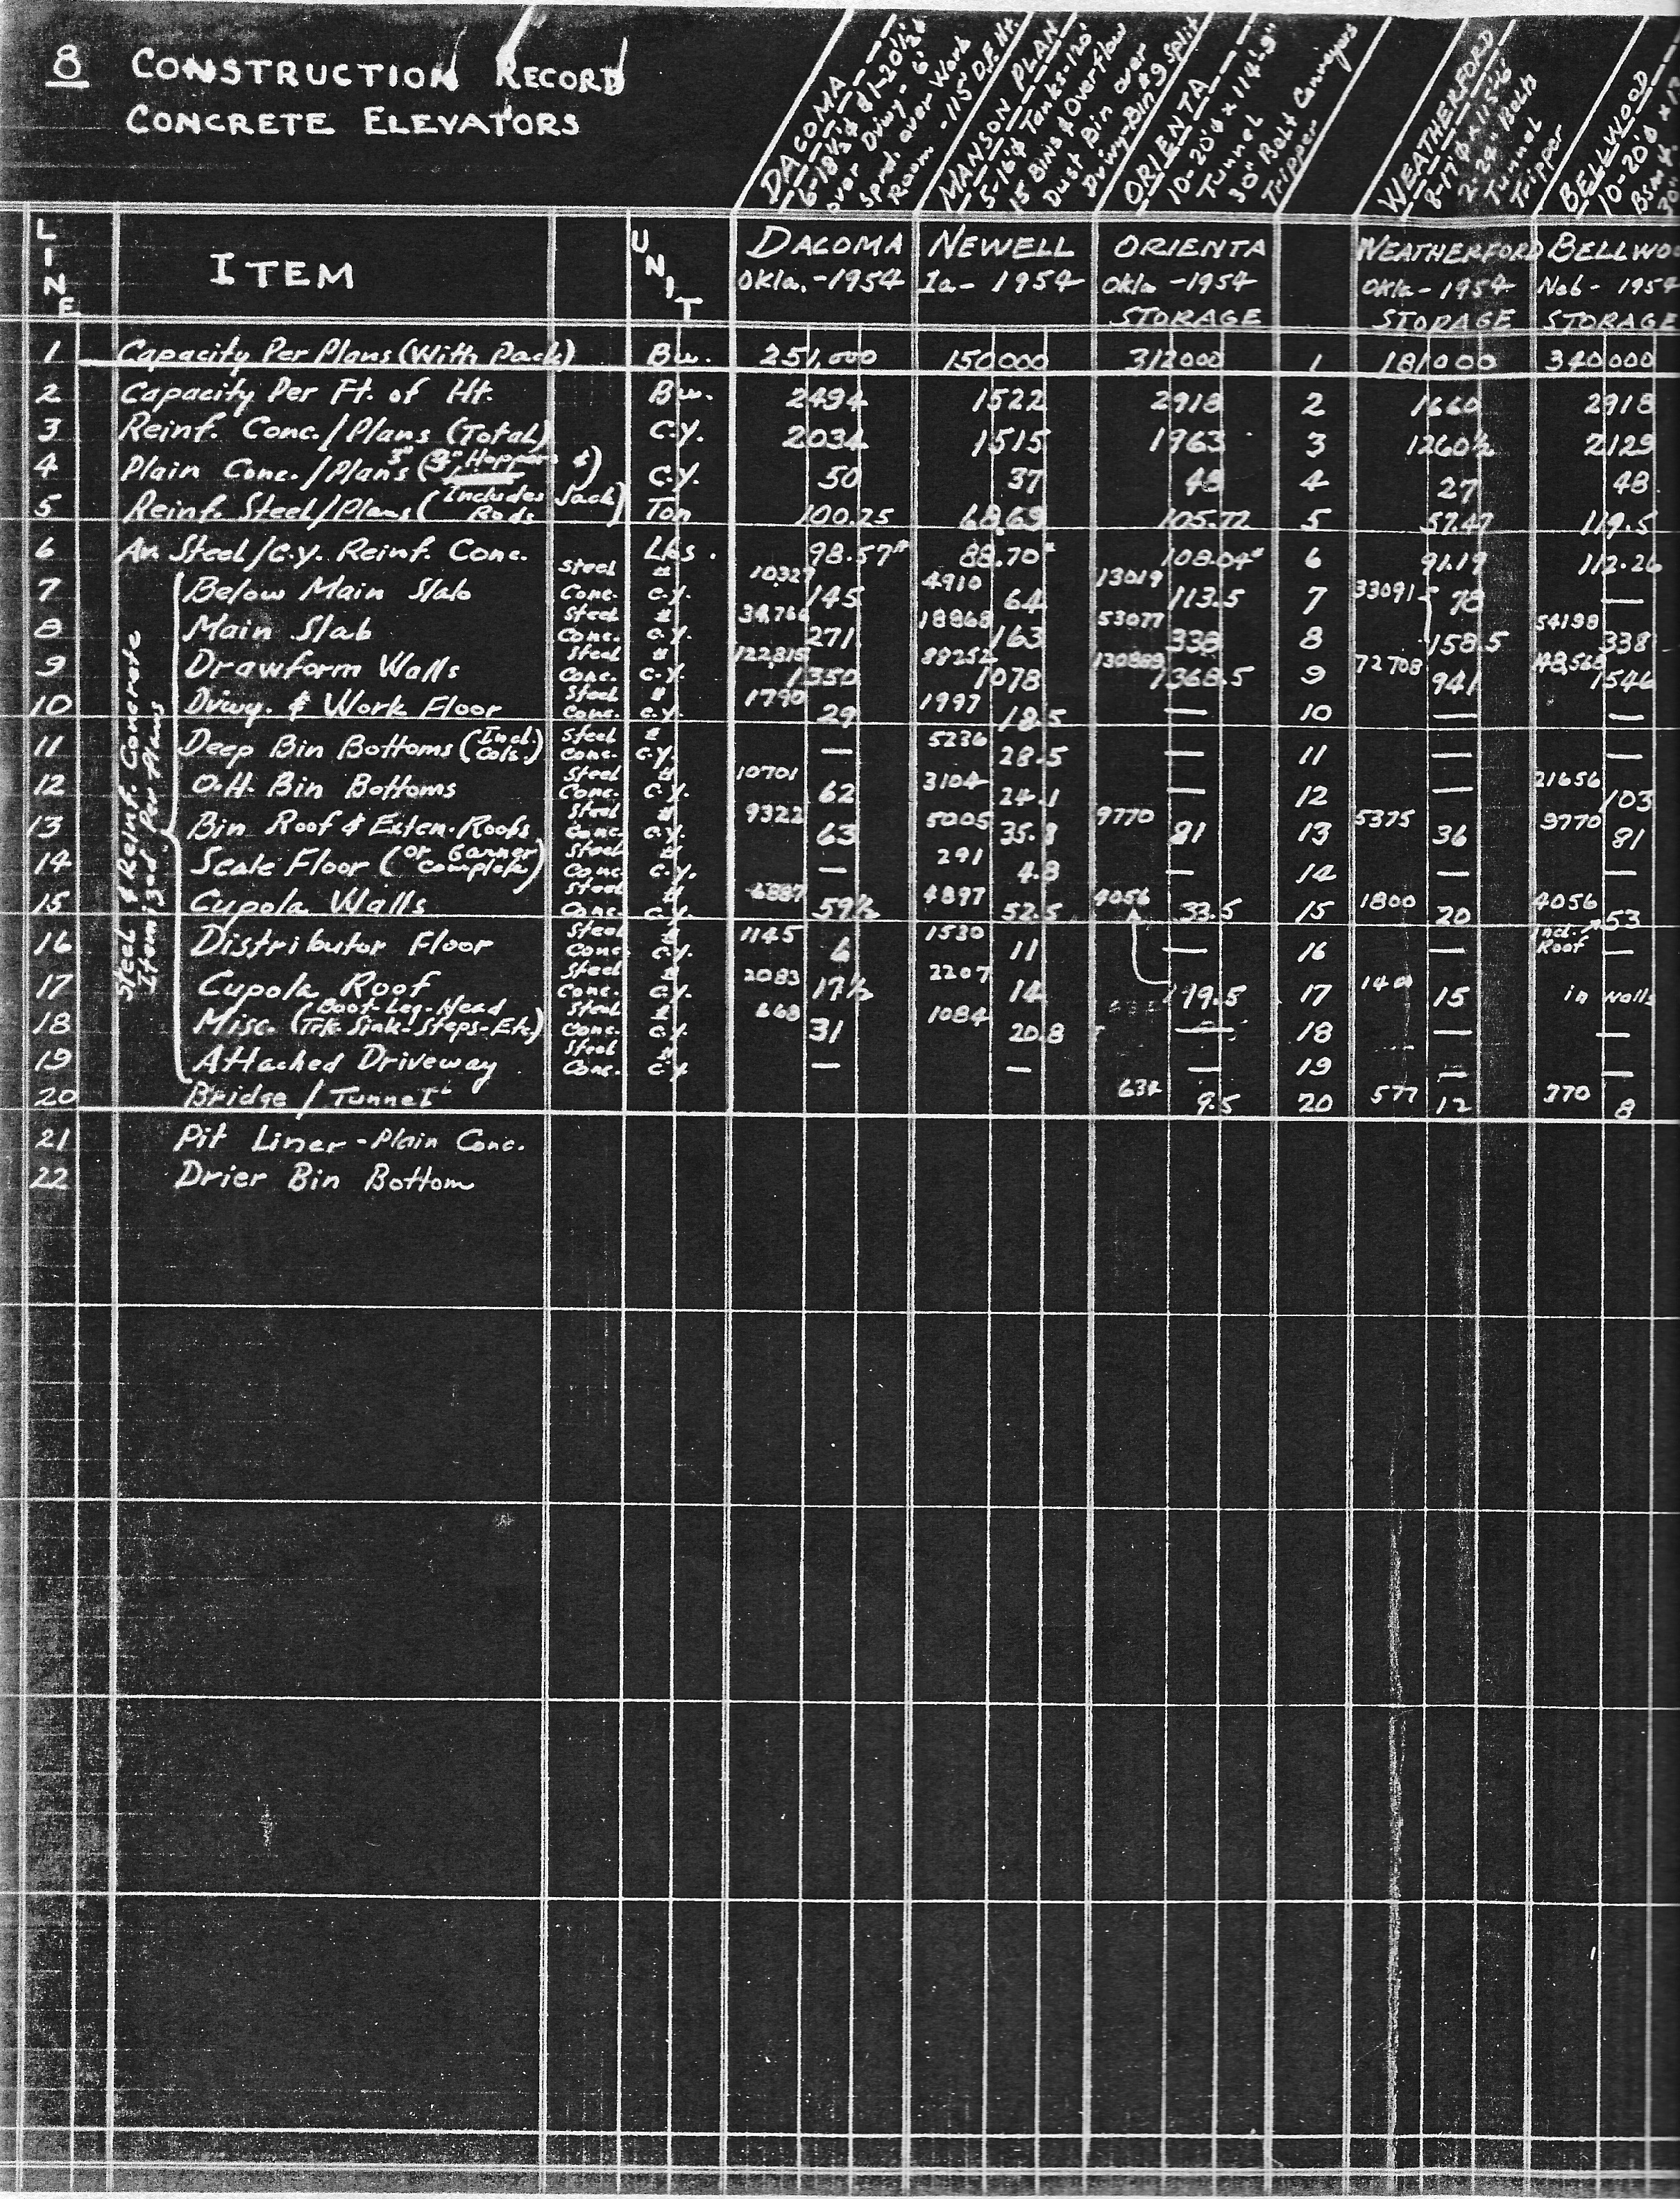 8 CONSTRUCTION RECORD
CONCRETE ELEVATORS
DACOMA
6-18½'φ & 1-20'½φ
over Drivwy-6'
Sprd. over Work
Room - 115' D.F. Ht.
MANSON PLAN
5-16'φ Tanks-120'
15 Bins & Overflow
Dust Bin over
Drivwy-Bin #9 Split
ORIENTA
10-20'φ x 114'-9"
Tunnel
30" Belt Conveyors
Tripper
WEATHERFORD
8-17'φ x 115'6
2-24" Belts
Tunnel
Tripper
BELLWOOD
10-20'φ x
LINE ITEM UNIT DACOMA NEWELL ORIENTA WEATHERFORD BELLWOO
Okla.-1954 Ia- 1954 Okla -1954 Okla- 1954 Neb- 1954
STORAGE STORAGE STORAGE
1 Capacity Per Plans (With Pack) Bu. 251,000 150000 312000 1 181000 340000
2 Capacity Per Ft. of Ht. Bu. 2494 1522 2918 2 1660 2918
3 Reinf. Conc./Plans (Total) C.Y. 2034 1515 1963 3 1260½ 2129
4 Plain Conc./Plans (3" Hoppers) C.Y. 50 37 48 4 27 48
5 Reinf. Steel/Plans (Includes Jack Rods) Ton 100.25 68.69 105.72 5 57.47 119.5
6 Av. Steel/C.Y. Reinf. Conc. Lbs. 98.57# 88.70# 108.04# 6 91.19 112.26
Steel & Reinf. Concrete
Itemized Per Plans
7 Below Main Slab Steel # 10327 4910 13019 33091
Conc. C.Y. 145 64 113.5 7 78 —
8 Main Slab Steel # 34766 18868 53077 54198
Conc. C.Y. 271 163 338 8 158.5 338
9 Drawform Walls Steel # 122815 88252 130889 72708 148,568
Conc. C.Y. 1350 1078 1368.5 9 941 1546
10 Drivwy. & Work Floor Steel # 1790 1997
Conc. C.Y. 29 18.5 — 10 — —
11 Deep Bin Bottoms (Incl. Cols.) Steel # 5236
Conc. C.Y. — 28.5 — 11 — —
12 O.H. Bin Bottoms Steel # 10701 3104 21656
Conc. C.Y. 62 24.1 — 12 — 103
13 Bin Roof & Exten. Roofs Steel # 9322 5005 9770 5375 9770
Conc. C.Y. 63 35.8 81 13 36 81
14 Scale Floor (or Garner Complete) Steel # 291
Conc. C.Y. — 4.8 — 14 — —
15 Cupola Walls Steel # 6887 4897 4056 1800 4056
Conc. C.Y. 59½ 52.5 33.5 15 20 53
16 Distributor Floor Steel # 1145 1530 Incl. Roof
Conc. C.Y. 6 11 — 16 — —
17 Cupola Roof Steel # 2083 2207 1401
Conc. C.Y. 17½ 14 19.5 17 15 in walls
18 Misc. (Boot-Leg-Head Trk. Sink-Steps-Etc) Steel # 668 1084
Conc. C.Y. 31 20.8 — 18 — —
19 Attached Driveway Steel #
Conc. C.Y. — — — 19 — —
20 Bridge / Tunnel 632 9.5 20 577 12 770 8
21 Pit Liner - Plain Conc.
22 Drier Bin Bottom